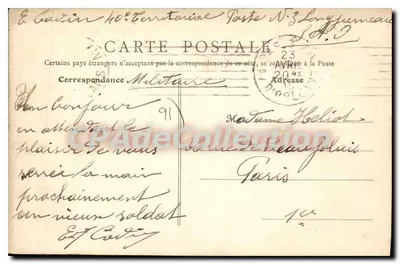 E Cauin 40e Territoriale Poste N.3 Longjumeau
S.&O
CARTE POSTALE
Certains pays étrangers n'acceptant pas la correspondance de ce côté, se renseigner à la Poste
Correspondance Militaire
Adresse
23
AVRIL
20
Un bonjour
en attendant le
plaisir de vous
serrer la main
prochainement
un vieux soldat
91
Madame Heliot
rue de Beaujolais
Paris
1er
CPADeCollection